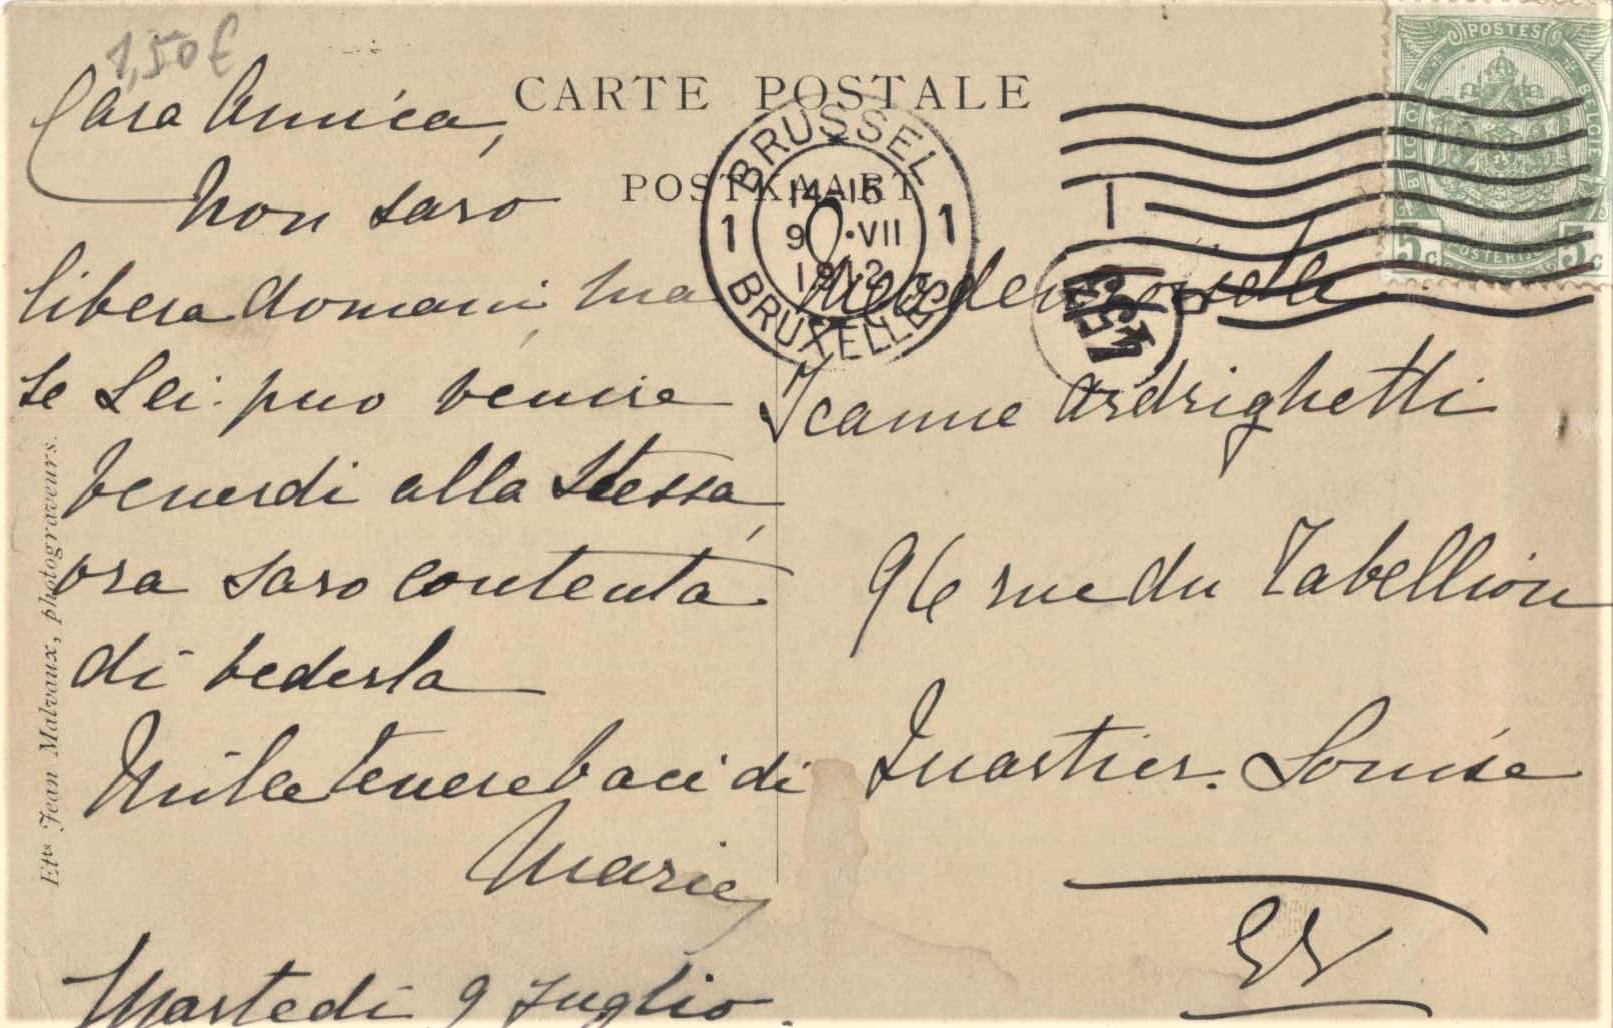 1,50€
CARTE POSTALE
POSTKAART
Cara Amica,
non saro
libera domani ma
se Lei puo venire
venerdi alla stessa
ora saro contenta
di vederla
Mille tenere baci di
Marie
Martedi 9 Luglio.
Etts Jean Malvaux, photograveurs.
BRUSSEL
14-15
1 9 .VII 1
1912
BRUXELLES
1
POSTES
BELGIQUE
BELGIË
POSTERIJEN
5 c 5 c
Mademoiselle
Jeanne Ardrighetti
96 rue du Tabellion
Quartier Louise
EV